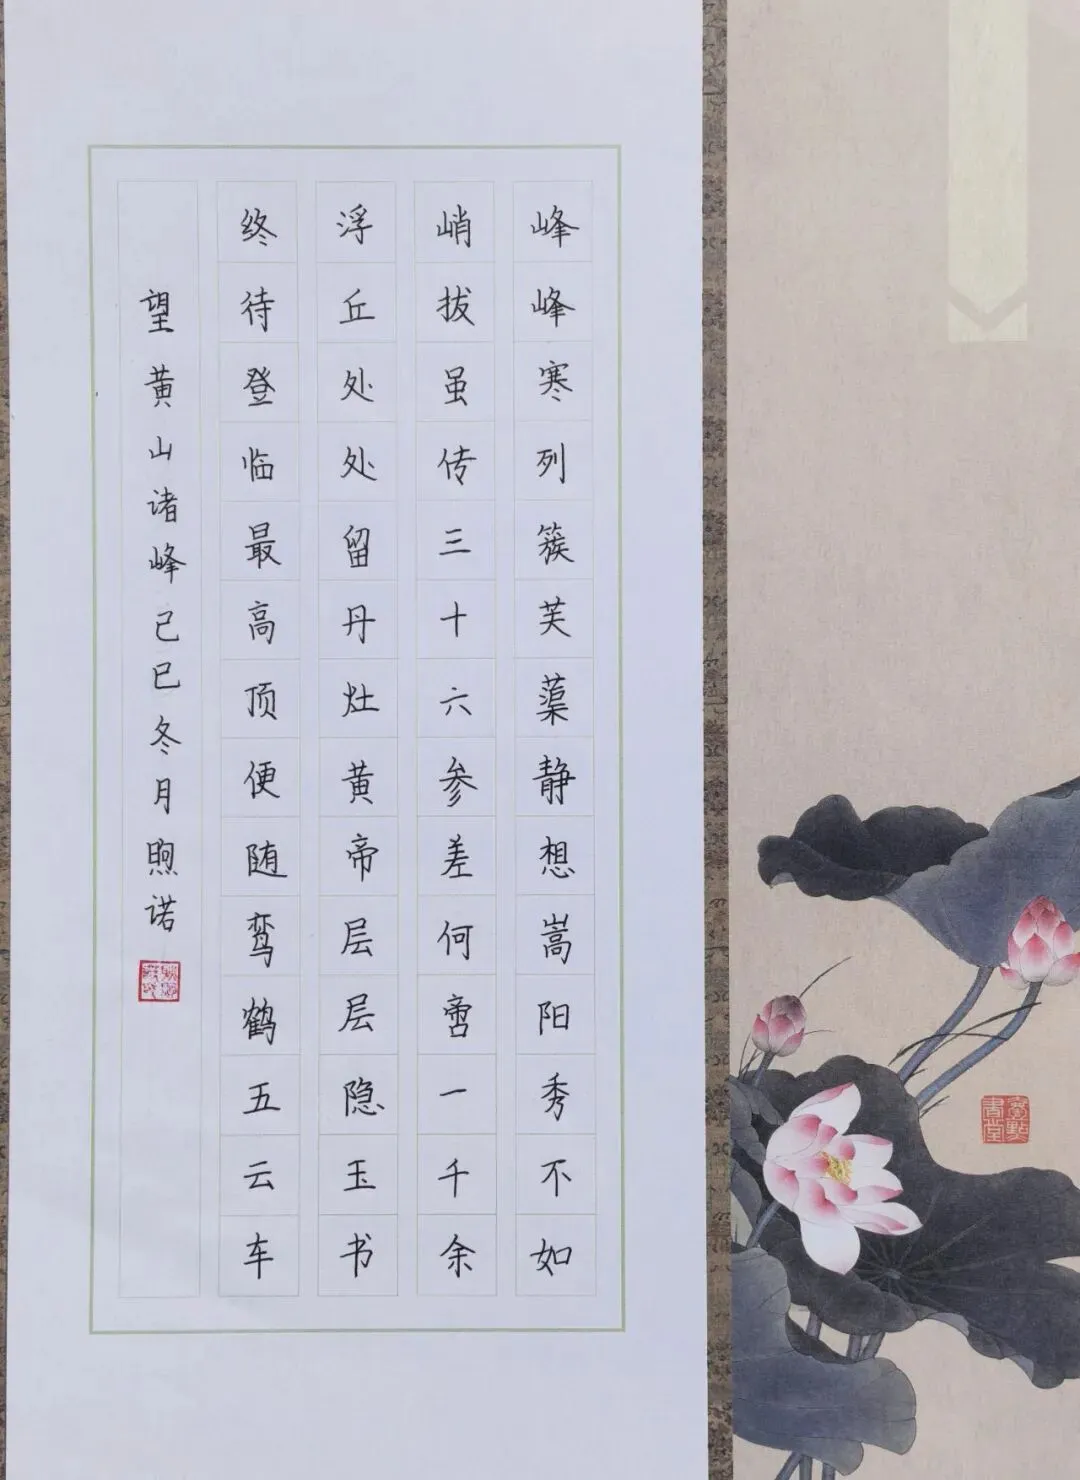 峰峰寒列簇芙蕖静想嵩阳秀不如
峭拔虽传三十六参差何啻一千余
浮丘处处留丹灶黄帝层层隐玉书
终待登临最高顶便随鸾鹤五云车
望黄山诸峰己巳冬月煦诺